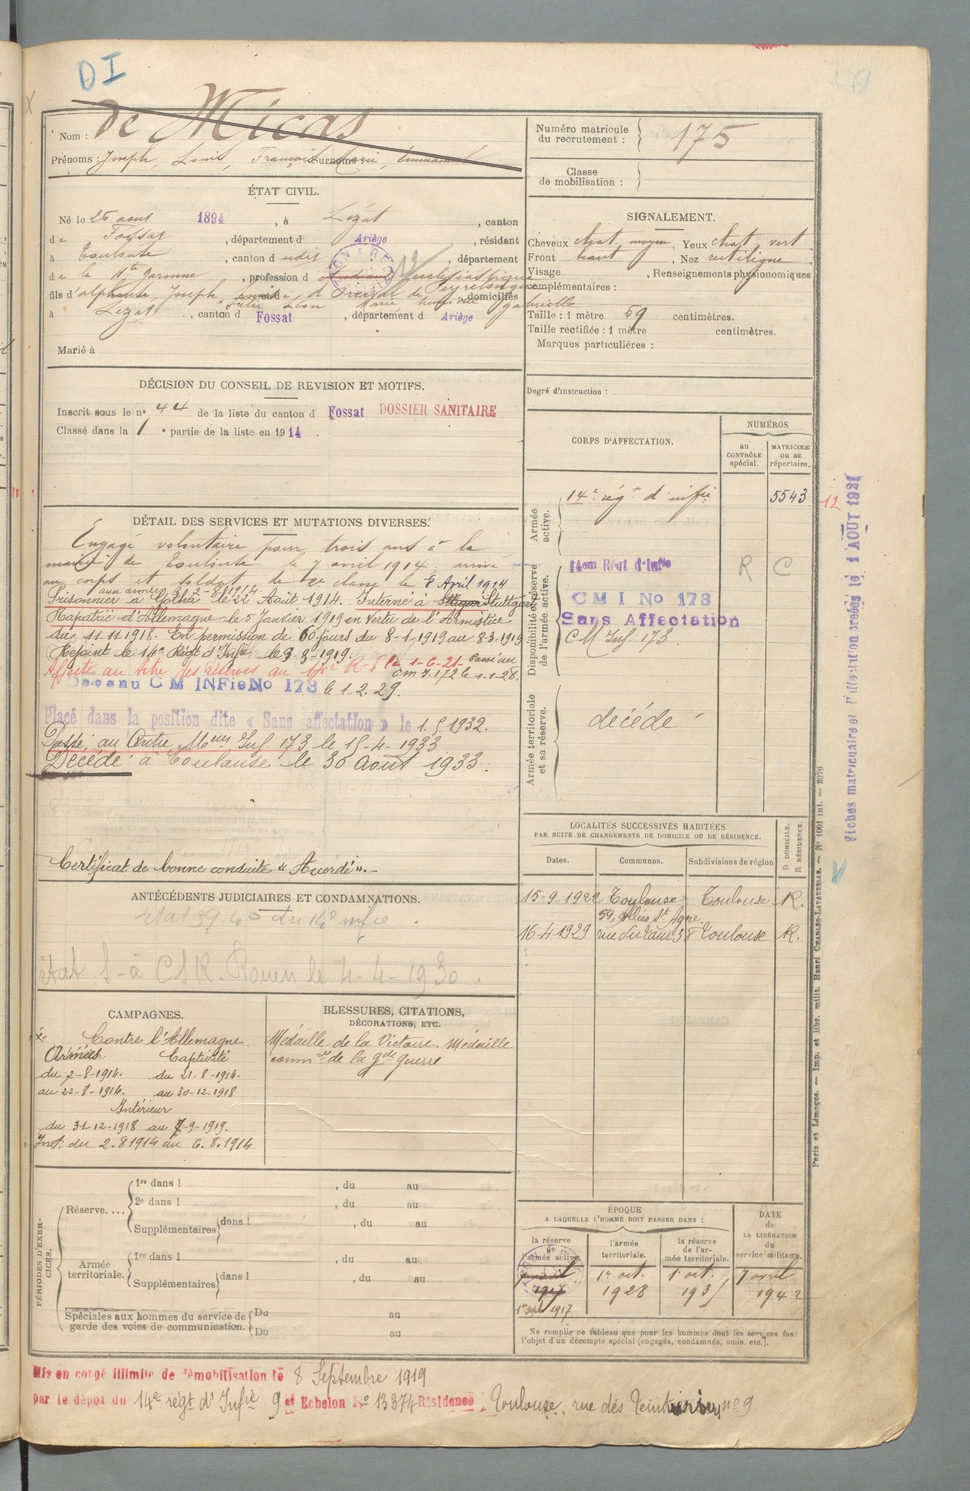 DI
Nom : de Micas
Prénoms : Joseph, Louis, François Surnoms :
ÉTAT CIVIL.
Né le 25 aout 1894, à Lézat, canton
de Fossat, département d Ariège, résidant
à Toulouse, canton d udit, département
de la Hte Garonne, profession d
fils d'alphonse, Joseph, et d domiciliés
à Lézat, canton d Fossat, département d Ariège
Marié à
DÉCISION DU CONSEIL DE REVISION ET MOTIFS.
Inscrit sous le n° 44 de la liste du canton d Fossat DOSSIER SANITAIRE
Classé dans la 1 e partie de la liste en 1914
DÉTAIL DES SERVICES ET MUTATIONS DIVERSES.
Engagé volontaire pour trois ans à la
mairie de Toulouse le 7 avril 1914, arrivé
au corps et soldat de 2e classe le 8 Avril 1914
aux armées
Prisonnier à Gotha le 22 Août 1914. Interné à Stuttgart
Rapatrié d'Allemagne le 5 janvier 1919 en vertu de l'Armistice
du 11.11.1918. En permission de 60 jours du 8-1-1919 au 8-3-1919
Rejoint le 14e Regt d'Infie le 9-3-1919
Affecté au titre des réserves au le 1-6-21. Passé au
cm I. 172 le 1.1.28.
Devenu CM INFie No 173 le 1.2.29.
Placé dans la position dite « Sans affectation » le 1.5 1932.
Passé au Centre Mon Inf 173 le 15-4-1933
Décédé à Toulouse le 30 Août 1933.
Certificat de bonne conduite « Accordé ».
ANTÉCÉDENTS JUDICIAIRES ET CONDAMNATIONS.
état S-à CSR. Rouen le 4-4-1930.
CAMPAGNES.
Contre l'Allemagne
Armées Captivité
du 7-8-1914. du 23-8-1914.
au 22-8-1914. au 30-12-1918
Intérieur
du 31-12-1918 au 7-9-1919.
Int. du 2.8.1914 au 6.8.1914
BLESSURES, CITATIONS,
DÉCORATIONS, ETC.
Médaille de la Victoire. Médaille
commve de la gde guerre
PÉRIODES D'EXERCICES.
Réserve....
1re dans l , du au
2e dans l , du au
Supplémentaires dans l , du au
Armée territoriale.
1re dans l , du au
Supplémentaires dans l , du au
Spéciales aux hommes du service de
garde des voies de communication.
Du au
Du au
Mis en congé illimité de démobilisation le 8 Septembre 1919
par le dépot du 14e régt d'Infie 9e Echelon No 13874 Résidence Toulouse, rue des Teinturiers no 9
Numéro matricule
du recrutement : 175
Classe
de mobilisation :
SIGNALEMENT.
Cheveux chat. moyen, Yeux chat. vert
Front haut, Nez rectiligne
Visage , Renseignements physionomiques
complémentaires :
Taille : 1 mètre 69 centimètres.
Taille rectifiée : 1 mètre centimètres.
Marques particulières :
Degré d'instruction :
CORPS D'AFFECTATION.
NUMÉROS
au CONTRÔLE spécial.
MATRICULE ou au répertoire.
Armée active.
14e régt d'infie 5543 12
Disponibilité et réserve de l'armée active.
14em Régt d'Infie R C
CMI No 173
Sans Affectation
CM Inf 173
Armée territoriale et sa réserve.
décédé
LOCALITÉS SUCCESSIVES HABITÉES
PAR SUITE DE CHANGEMENTS DE DOMICILE OU DE RÉSIDENCE.
Dates. Communes. Subdivisions de région D. DOMICILE. R. RÉSIDENCE.
15-9-1922 Toulouse Toulouse R.
16-4-1929 Toulouse R.
ÉPOQUE
A LAQUELLE L'HOMME DOIT PASSER DANS :
la réserve de l'armée active
l'armée territoriale.
la réserve de l'armée territoriale.
DATE de LA LIBÉRATION du service militaire.
7 avril 1917
1er oct. 1928
1 oct. 1935
7 avril 1942
1er sept 1917
Ne remplir ce tableau que pour les hommes dont les services font
l'objet d'un décompte spécial (engagés, condamnés, omis, etc.).
Fiches matriculaire et d'affectation créées le 1 AOUT 1921
Paris et Limoges. — Imp. et libr. milit. Henri CHARLES-LAVAUZELLE.